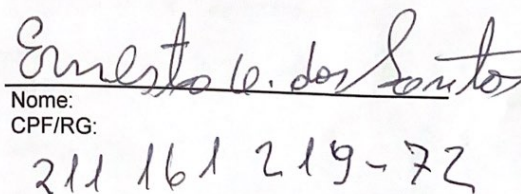 Ernesto C. dos Santos
Nome:
CPF/RG:
211 161 219-72